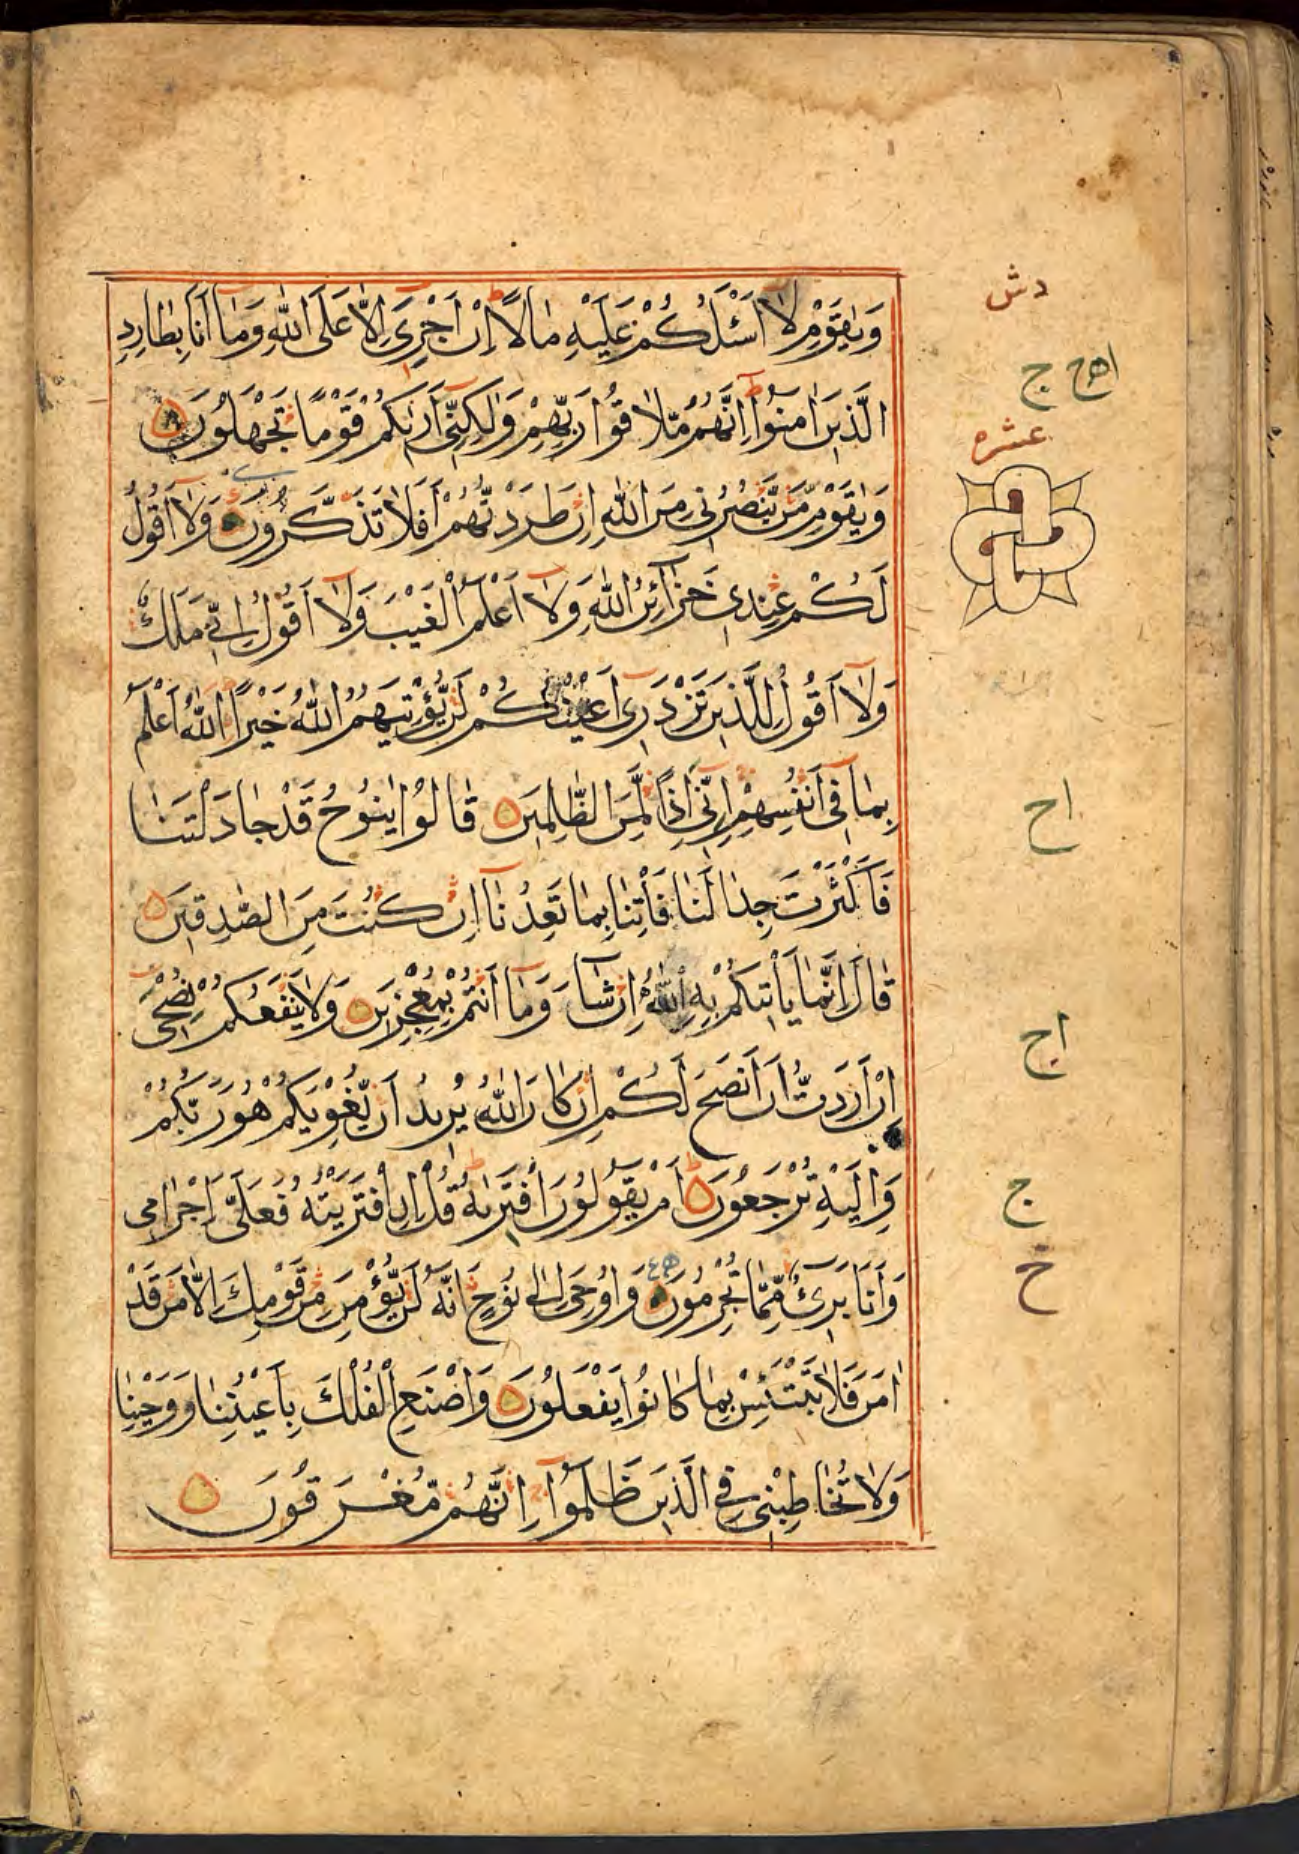 وَيٰقَوْمِ لَآ اَسْئَلُكُمْ عَلَيْهِ مَالًا اِنْ اَجْرِىَ اِلَّا عَلَى اللّٰهِ وَمَآ اَنَا بِطَارِدِ
الَّذِيْنَ اٰمَنُوْا اِنَّهُمْ مُّلَاقُوْا رَبِّهِمْ وَلٰكِنِّىٓ اَرٰىكُمْ قَوْمًا تَجْهَلُوْنَ
وَيٰقَوْمِ مَنْ يَّنْصُرُنِىْ مِنَ اللّٰهِ اِنْ طَرَدْتُّهُمْ اَفَلَا تَذَكَّرُوْنَ وَلَآ اَقُوْلُ
لَكُمْ عِنْدِىْ خَزَآئِنُ اللّٰهِ وَلَآ اَعْلَمُ الْغَيْبَ وَلَآ اَقُوْلُ اِنِّىْ مَلَكٌ
وَلَآ اَقُوْلُ لِلَّذِيْنَ تَزْدَرِىٓ اَعْيُنُكُمْ لَنْ يُّؤْتِيَهُمُ اللّٰهُ خَيْرًا اَللّٰهُ اَعْلَمُ
بِمَا فِىٓ اَنْفُسِهِمْ اِنِّىٓ اِذًا لَّمِنَ الظّٰلِمِيْنَ قَالُوْا يٰنُوْحُ قَدْ جَادَلْتَنَا
فَاَكْثَرْتَ جِدَالَنَا فَأْتِنَا بِمَا تَعِدُنَآ اِنْ كُنْتَ مِنَ الصّٰدِقِيْنَ
قَالَ اِنَّمَا يَأْتِيْكُمْ بِهِ اللّٰهُ اِنْ شَآءَ وَمَآ اَنْتُمْ بِمُعْجِزِيْنَ وَلَا يَنْفَعُكُمْ نُصْحِىٓ
اِنْ اَرَدْتُّ اَنْ اَنْصَحَ لَكُمْ اِنْ كَانَ اللّٰهُ يُرِيْدُ اَنْ يُّغْوِيَكُمْ هُوَ رَبُّكُمْ
وَاِلَيْهِ تُرْجَعُوْنَ اَمْ يَقُوْلُوْنَ افْتَرٰىهُ قُلْ اِنِ افْتَرَيْتُهُ فَعَلَىَّ اِجْرَامِى
وَاَنَا بَرِىْٓءٌ مِّمَّا تُجْرِمُوْنَ وَاُوْحِىَ اِلٰى نُوْحٍ اَنَّهُ لَنْ يُّؤْمِنَ مِنْ قَوْمِكَ اِلَّا مَنْ قَدْ
اٰمَنَ فَلَا تَبْتَئِسْ بِمَا كَانُوْا يَفْعَلُوْنَ وَاصْنَعِ الْفُلْكَ بِاَعْيُنِنَا وَوَحْيِنَا
وَلَا تُخَاطِبْنِىْ فِى الَّذِيْنَ ظَلَمُوْا اِنَّهُمْ مُّغْرَقُوْنَ
دش
ج
عشره
اح
اج
ج
خ